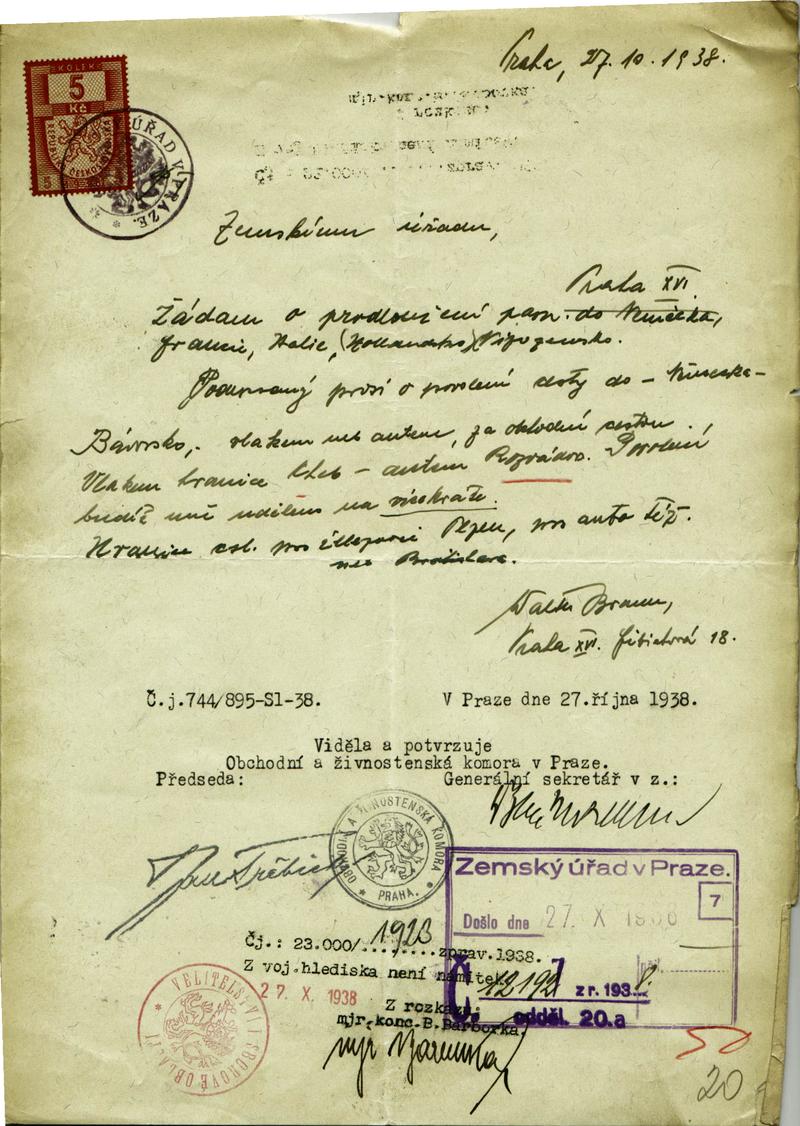 KOLEK
5
Kč
ÚŘAD V PRAZE.
Praha, 27. 10. 1938.
Zemskému úřadu,
Praha XVI.
Žádám o prodloužení pasu do Německa,
Francie, Italie, (Hollandsko)
Podepsaný prosí o povolení cesty do – Německa –
Bavorsko, vlakem neb autem, za obchodní cestou.
Vlakem hranice Cheb – autem Rozvadov. Povolení
budiž mně uděleno na vícekráte.
Hranice čsl. pro Plzeň, pro auto též.
neb Bratislava.
Walter Braun,
Praha XVI. Fibichová 18.
Č.j.744/895-Sl-38.
V Praze dne 27.října 1938.
Viděla a potvrzuje
Obchodní a živnostenská komora v Praze.
Předseda:
Generální sekretář v z.:
OBCHODNÍ A ŽIVNOSTENSKÁ KOMORA
PRAHA.
Zemský úřad v Praze.
7
Došlo dne 27. X
Čj.: 23.000/1923 zprav.1938.
Z voj.hlediska není námitek
27. X 1938
z r. 1938.
Z rozkazu:
odděl. 20.a
mjr.konc.B.Barborka.
VELITELSTVÍ I. SBOROVÉ OBLASTI
20